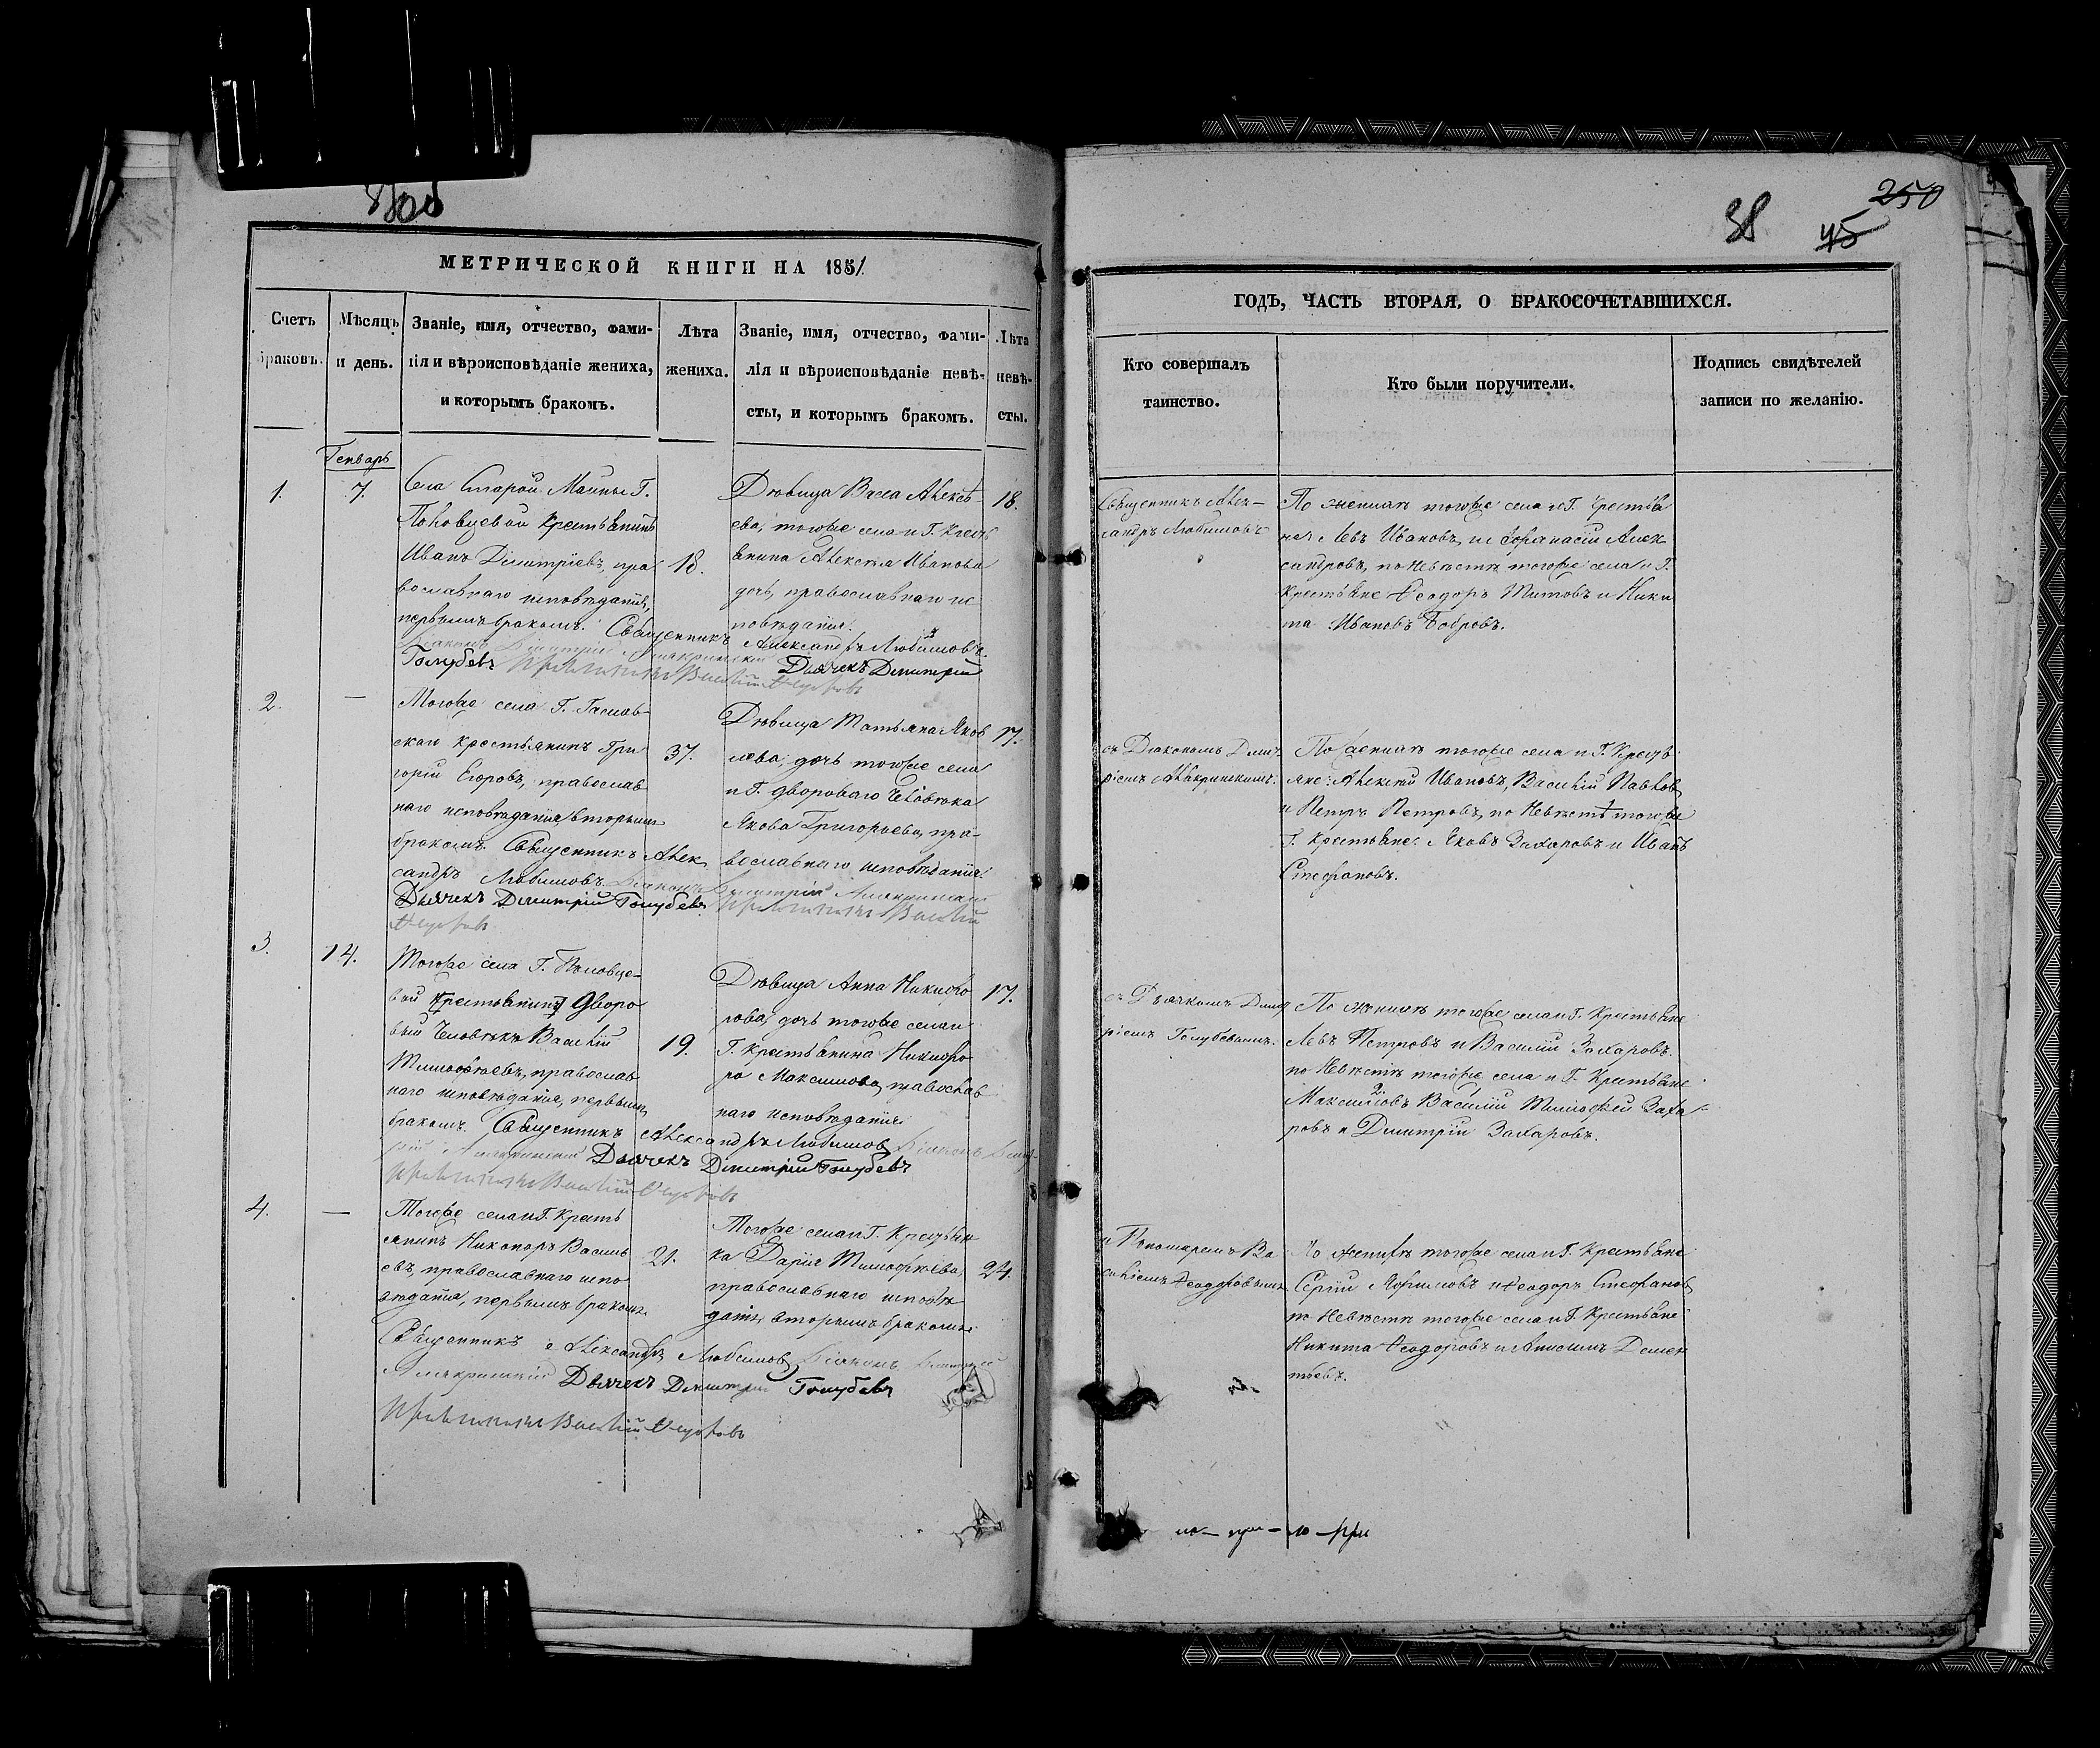 250
38
45
МЕТРИЧЕСКОЙ КНИГИ НА 1851
Счетъ браковъ.
Мѣсяцъ и день.
Званіе, имя, отчество, фами-
лія и вѣроисповѣданіе жениха,
и которымъ бракомъ.
Лѣта жениха.
Званіе, имя, отчество, фами-
лія и вѣроисповѣданіе невѣ-
сты, и которымъ бракомъ.
Лѣта невѣ-
сты.
Генварь
1.
7.
Села Старой Майны Г.
Половцевой крестьянинъ
Иванъ Димитріевъ, пра
вославнаго исповѣданія,
первымъ бракомъ.
18.
Дѣвица Васса Алексѣ
ева, тогоже села и Г. крест
янина Алексѣя Иванова
дочь, православнаго ис
повѣданія.
18.
Священникъ Александръ Любимовъ
Дьячекъ Димитрій
Голубевъ
2.
—
Тогоже села Г.
скаго крестьянинъ Гри
горій Егоровъ, православ
наго исповѣданія вторымъ
бракомъ. Священникъ Алек
сандръ Любимовъ
37.
Дѣвица Татьяна Яков
лева, дочь тогоже села
и Г. двороваго человѣка
Якова Григорьева, пра-
вославнаго исповѣданія.
17.
Дьячекъ Димитрій Голубевъ
3.
14.
Тогоже села Г. Половце-
вой крестьянинъ дворо
вый человѣкъ Василій
Тимофѣевъ, православ
наго исповѣданія, первымъ
бракомъ. Священникъ Александръ Любимовъ
19.
Дѣвица Анна Никифо
рова, дочь тогоже села и
Г. крестьянина Никифо
ра Максимова, православ
наго исповѣданія.
17.
Дьячекъ Димитрій Голубевъ
4.
—
Тогоже села и Г. кресть
янинъ Никоноръ Василь
евъ, православнаго испо
вѣданія, первымъ бракомъ.
21.
Тогоже села и Г. крестьян
ка Дарія Тимофѣева,
православнаго исповѣ
данія, вторымъ бракомъ.
24.
Священникъ Александръ Любимовъ
Дьячекъ Димитрій Голубевъ
ГОДЪ, ЧАСТЬ ВТОРАЯ, О БРАКОСОЧЕТАВШИХСЯ.
Кто совершалъ
таинство.
Кто были поручители.
Подпись свидѣтелей
записи по желанію.
Священникъ Алек-
сандръ Любимовъ
По женихѣ тогоже села и Г. крестья
не: Левъ Ивановъ, и Афанасій Алек
сандровъ, по невѣстѣ тогоже села и Г.
крестьяне Ѳеодоръ Титовъ и Ники
та Ивановъ Бобровъ.
съ Діакономъ Димит
ріемъ
По женихѣ тогоже села и Г. крестья
яне: Алексѣй Ивановъ, Василій Павлов
и Петръ Петровъ, по невѣстѣ тогоже
Г. крестьяне: Яковъ Захаровъ и Иванъ
Стефановъ.
съ Дьячкомъ Димит
ріемъ Голубевымъ.
По женихѣ тогоже села и Г. крестьяне
Левъ Петровъ и Василій Захаровъ.
по невѣстѣ тогоже села и Г. крестьяне
Максимовъ Василій Тимофей Заха-
ровъ и Димитрій Захаровъ.
и Пономаремъ Ва
силіемъ Ѳеодоровымъ
По женихѣ тогоже села и Г. крестьяне
Сергій Ефимовъ и Ѳеодоръ Стефановъ,
по невѣстѣ тогоже села и Г. крестьяне
Никита Ѳеодоровъ и Анисимъ Демен
тьевъ.